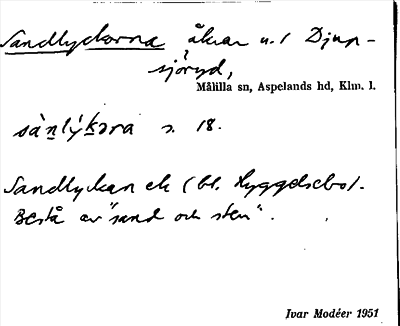 Sandlyckorna åkrar u. / Djup-
sjöryd,
Målilla sn, Aspelands hd, Klm. l.
sànlýkəra s. 18.
Sandlyckan ek (bl. Hyggelsebo).
Bestå av "sand och sten".
Ivar Modéer 1951